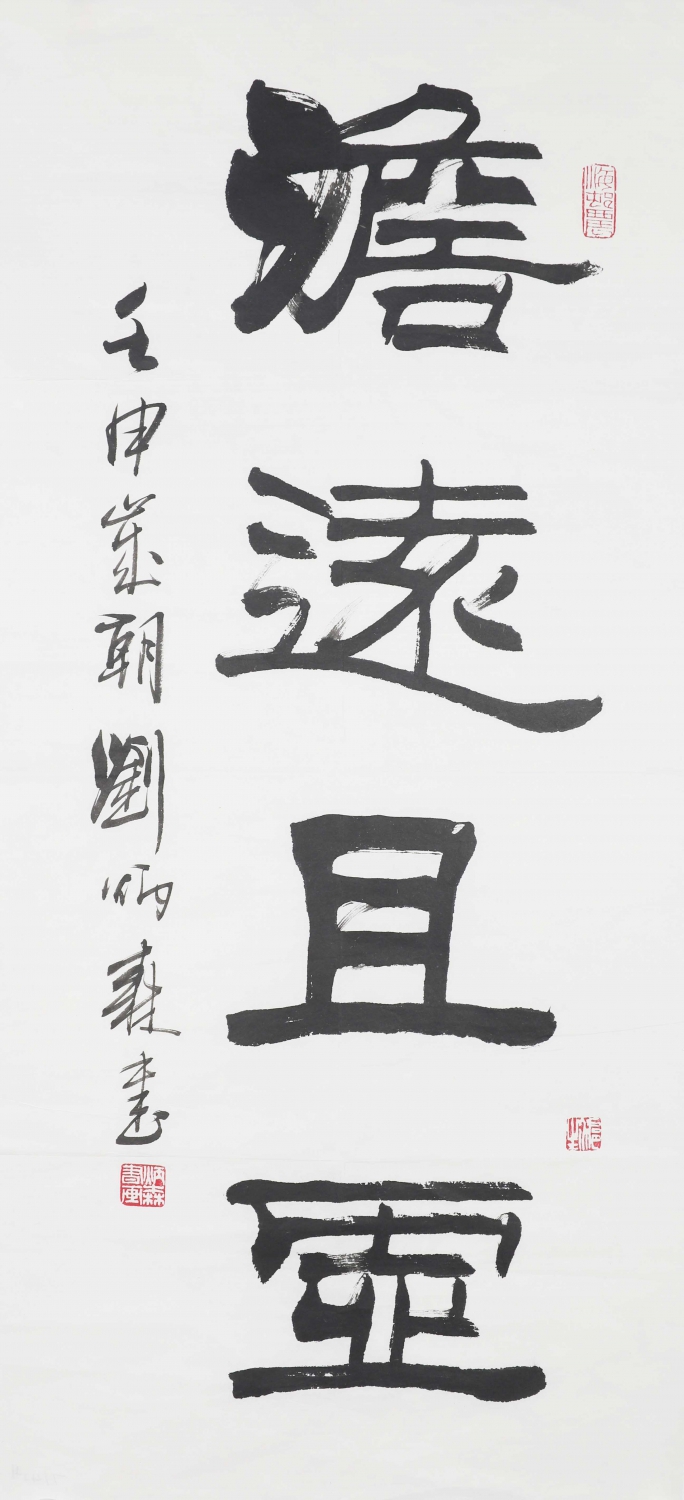 澹遠且
壬申歲朝劉炳森書
炳森書畫